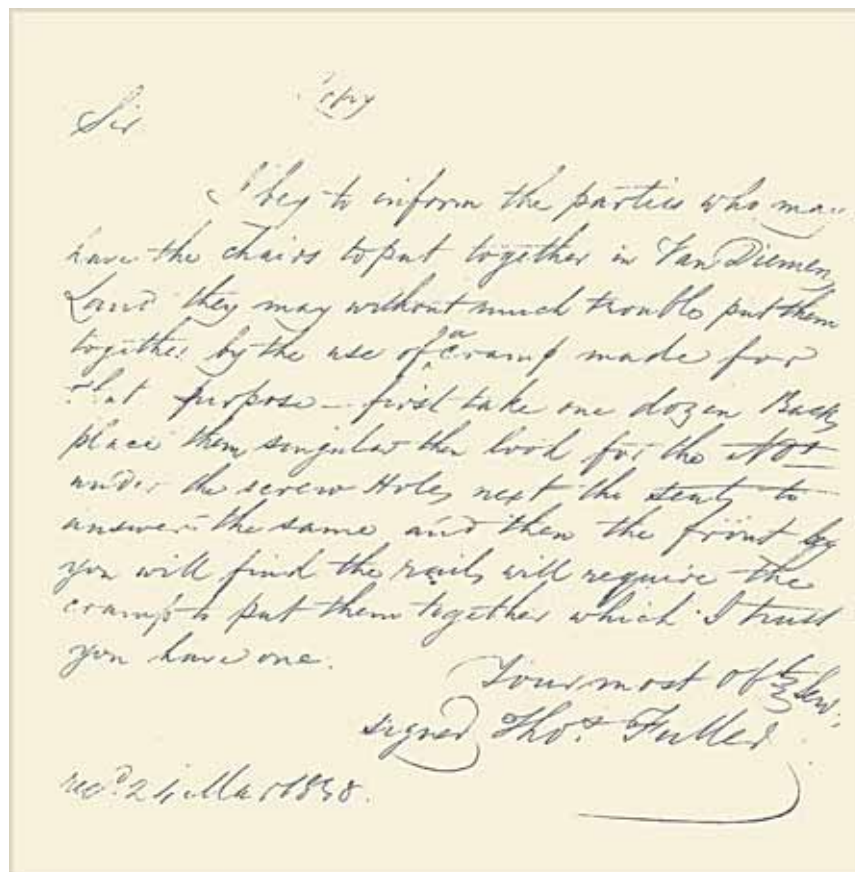 Copy
Sir
I beg to inform the parties who may
have the chairs to put together in Van Diemens
Land they may without much trouble put them
together by the use of a cramp made for
that purpose – first take one dozen Backs
place them singular then look for the Nos
under the screw Holes next the seats to
answer the same and then the front leg
you will find the rails will require the
cramp to put them together which I trust
you have one.
Your most Obt Serv.
signed Thos. Fuller
recd. 24 Mar 1838.